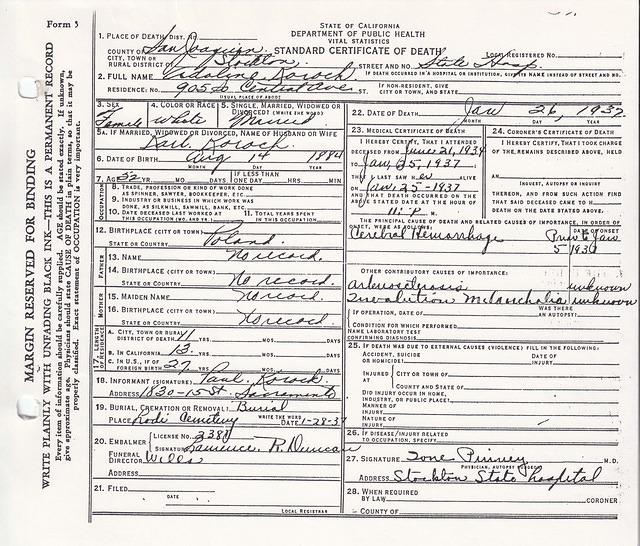 Form 3
STATE OF CALIFORNIA
DEPARTMENT OF PUBLIC HEALTH
VITAL STATISTICS
STANDARD CERTIFICATE OF DEATH
LOCAL REGISTERED NO.
MARGIN RESERVED FOR BINDING
WRITE PLAINLY WITH UNFADING BLACK INK—THIS IS A PERMANENT RECORD
Every item of information should be carefully supplied. AGE should be stated exactly. If unknown,
give approximate age. Physicians should state CAUSE OF DEATH in plain terms, so that it may be
properly classified. Exact statement of OCCUPATION is very important.
1. PLACE OF DEATH: DIST. NO.
COUNTY OF San Joaquin
CITY, TOWN OR RURAL DISTRICT Stockton STREET AND NO. State Hosp.
IF DEATH OCCURRED IN A HOSPITAL OR INSTITUTION, GIVE ITS NAME INSTEAD OF STREET AND NO.
2. FULL NAME Korock
RESIDENCE: NO. Central Ave ST. IF NON-RESIDENT, GIVE CITY OR TOWN, AND STATE
USUAL PLACE OF ABODE
3. SEX Female 4. COLOR OR RACE White 5. SINGLE, MARRIED, WIDOWED OR DIVORCED? (WRITE THE WORD) Married
5A. IF MARRIED, WIDOWED OR DIVORCED, NAME OF HUSBAND OR WIFE
Paul Korock
6. DATE OF BIRTH Aug 14 1884
MONTH DAY YEAR
7. AGE 52 YRS. MOS. DAYS IF LESS THAN ONE DAY, HRS. MIN.
OCCUPATION
8. TRADE, PROFESSION OR KIND OF WORK DONE
AS SPINNER, SAWYER, BOOKKEEPER, ETC.
9. INDUSTRY OR BUSINESS IN WHICH WORK WAS
DONE, AS SILKMILL, SAWMILL, BANK, ETC.
10. DATE DECEASED LAST WORKED AT THIS OCCUPATION (MO. AND YR.) 11. TOTAL YEARS SPENT IN THIS OCCUPATION
12. BIRTHPLACE (CITY OR TOWN)
STATE OR COUNTRY Poland
FATHER
13. NAME No record.
14. BIRTHPLACE (CITY OR TOWN)
STATE OR COUNTRY No record.
MOTHER
15. MAIDEN NAME No record.
16. BIRTHPLACE (CITY OR TOWN)
STATE OR COUNTRY No record.
17. LENGTH OF RESIDENCE
A. CITY, TOWN OR RURAL DISTRICT OF DEATH 11 YRS. MOS. DAYS
B. IN CALIFORNIA 13 YRS. MOS. DAYS
C. IN U.S., IF OF FOREIGN BIRTH 27 YRS. MOS. DAYS
18. INFORMANT (SIGNATURE) Paul Korock
ADDRESS 1830-15 St. Sacramento
19. BURIAL, CREMATION OR REMOVAL? Burial
WRITE THE WORD
PLACE Lodi Cemetery DATE 1-28-37
20. EMBALMER LICENSE NO.
SIGNATURE Laurence R. Duncan
FUNERAL DIRECTOR
ADDRESS
21. FILED
DATE LOCAL REGISTRAR
22. DATE OF DEATH Jan 26, 1937
MONTH DAY YEAR
23. MEDICAL CERTIFICATE OF DEATH
I HEREBY CERTIFY, THAT I ATTENDED
DECEASED FROM June 21, 1934
TO Jan, 25, 1937
THAT I LAST SAW HER ALIVE
ON Jan, 25-1937
AND THAT DEATH OCCURRED ON THE ABOVE
STATED DATE AT THE HOUR OF
P. M.
24. CORONER'S CERTIFICATE OF DEATH
I HEREBY CERTIFY, THAT I TOOK
CHARGE OF THE REMAINS DESCRIBED ABOVE, HELD
AN
INQUEST, AUTOPSY OR INQUIRY
THEREON, AND FROM SUCH ACTION FIND
THAT SAID DECEASED CAME TO H
DEATH ON THE DATE STATED ABOVE.
THE PRINCIPAL CAUSE OF DEATH AND RELATED CAUSES OF IMPORTANCE, IN ORDER OF
ONSET, WERE AS FOLLOWS: DATE OF ONSET
Cerebral Hemorrhage Prior to Jan
OTHER CONTRIBUTORY CAUSES OF IMPORTANCE:
arteriosclerosis unknown
Involution Melancholia unknown
IF OPERATION, DATE OF WAS THERE AN AUTOPSY?
CONDITION FOR WHICH PERFORMED
NAME LABORATORY TEST
CONFIRMING DIAGNOSIS
25. IF DEATH WAS DUE TO EXTERNAL CAUSES (VIOLENCE) FILL IN THE FOLLOWING:
ACCIDENT, SUICIDE OR HOMICIDE? DATE OF INJURY
INJURED AT CITY OR TOWN OF
COUNTY AND STATE OF
DID INJURY OCCUR IN HOME,
INDUSTRY, OR PUBLIC PLACE?
MANNER OF INJURY
NATURE OF INJURY
26. IF DISEASE/INJURY RELATED
TO OCCUPATION, SPECIFY.
27. SIGNATURE Pinney M.D.
PHYSICIAN, AUTOPSY SURGEON
ADDRESS Stockton State Hospital
28. WHEN REQUIRED BY LAW CORONER
COUNTY OF